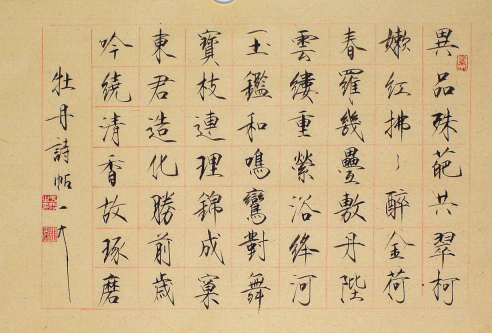 異品殊葩共翠柯
嫩紅拂〻醉金荷
春羅幾疊敷丹陛
雲縷重縈浴絳河
玉鑑和鳴鸞對舞
寶枝連理錦成窠
東君造化勝前歲
吟繞清香故琢磨
牡丹詩帖